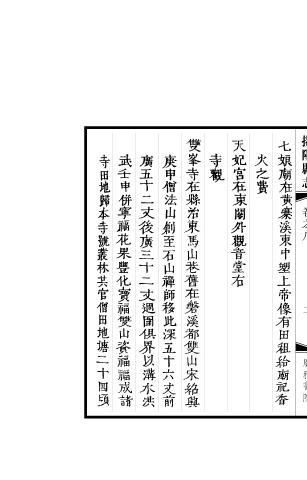 七娘廟在黃寨溪東中塑上帝像有田租給廟祀香
火之費
天妃宮在東關外觀音堂右
寺觀
雙峯寺在縣治東馬山巷舊在磐溪都雙山宋紹興
庚申僧法山創至石山禪師移此深五十六丈前
廣五十二丈後廣三十二丈週圍俱界以溝水洪
武壬申併寧福花果豐化寶福雙山瓷福福成諸
寺田地歸本寺號叢林其官僧田地塘二十四頃